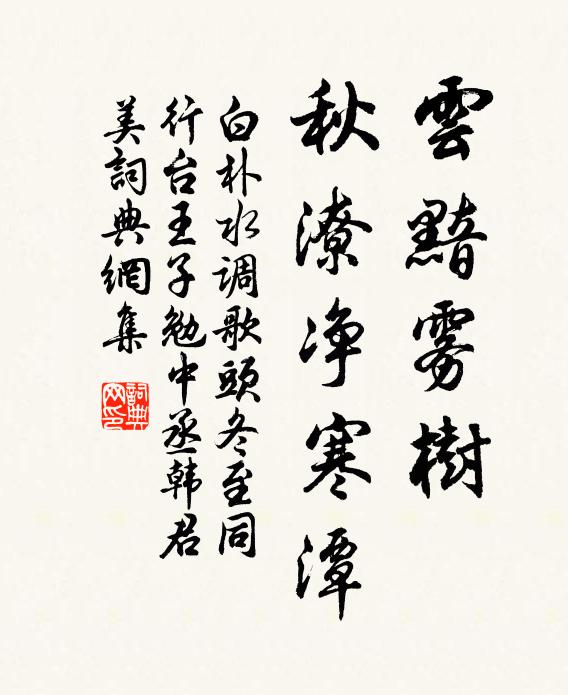 雲黯雾樹
秋潦净寒潭
白朴水调歌頭冬至同
行台王子勉中丞韩君
美詞典網集
詞典
网印